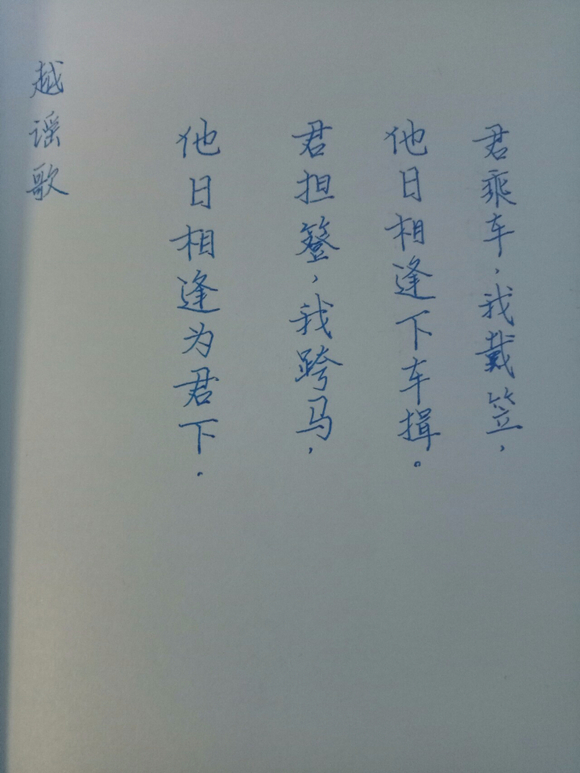 君乘车，我戴笠，
他日相逢下车揖。
君担簦，我跨马，
他日相逢为君下.
越谣歌